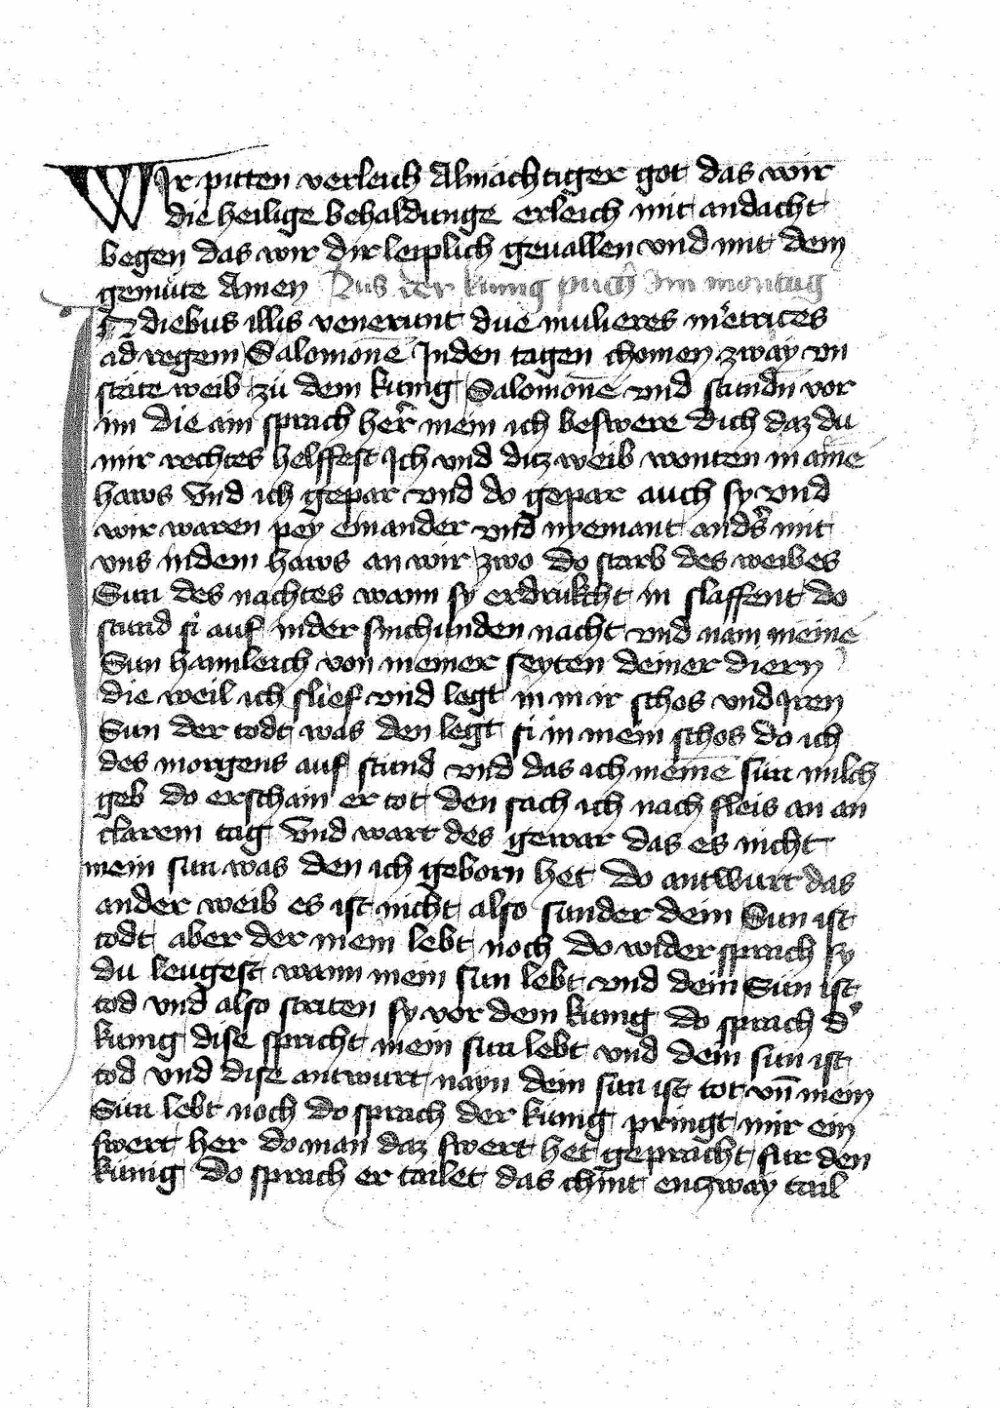 Wir pitten verleich Almächtiger got das wir
die heilige behaldunge erleich mit andacht
begen das wir dir leiplich geuallen vnd mit dem
gemüte Amen Aus der kunig puch Im montag
In diebus illis venerunt due mulieres metrices
ad regem Salomonē In den tagen chomen zway vn
stäte weib zü dem kunig Salomonē vnd stundn̄ vor
im die ain sprach her mein ich beswere dich daz du
mir rechtes helffest Ich vnd ditz weib wonten in aīnē
haws Vnd ich gepar vnd do gepar auch sy vnd
wir waren pey einander vnd nyemant anders mit
vns in dem haws an wir zwo do starb des weibes
Sun des nachtes wann sy erdrukcht in slaffent do
stund si auf in der sinchunden nacht vnd nam meinē
Sun haimleich von meiner seyten deiner diern
die weil ich slief vnd legt in in ir schos vnd Iren
Sun der todt was den legt si in mein schos do ich
des morgens auf stund vnd das ich meinē sun milch
geb do erschain er tot den sach ich nach fleis an an
clarem tag Vnd wart des gewar das es nicht
mein sun was den ich geborn het Do antwurt das
ander weib es ist nicht also sunder dein Sun ist
todt aber der mein lebt noch Do wider sprach sy
du leugest wann mein sun lebt vnd dein Sun ist
tod vnd also striten sy vor dem kunig do sprach d'
kunig dise spricht mein sun lebt vnd dein sun ist
tod vnd dise antwurt nayn dein sun ist tot vn̄ mein
Sun lebt noch Do sprach der kunig pringt mir ein
swert her do man daz swert het gepracht für den
künig Do sprach er tailet das chint enczway tail